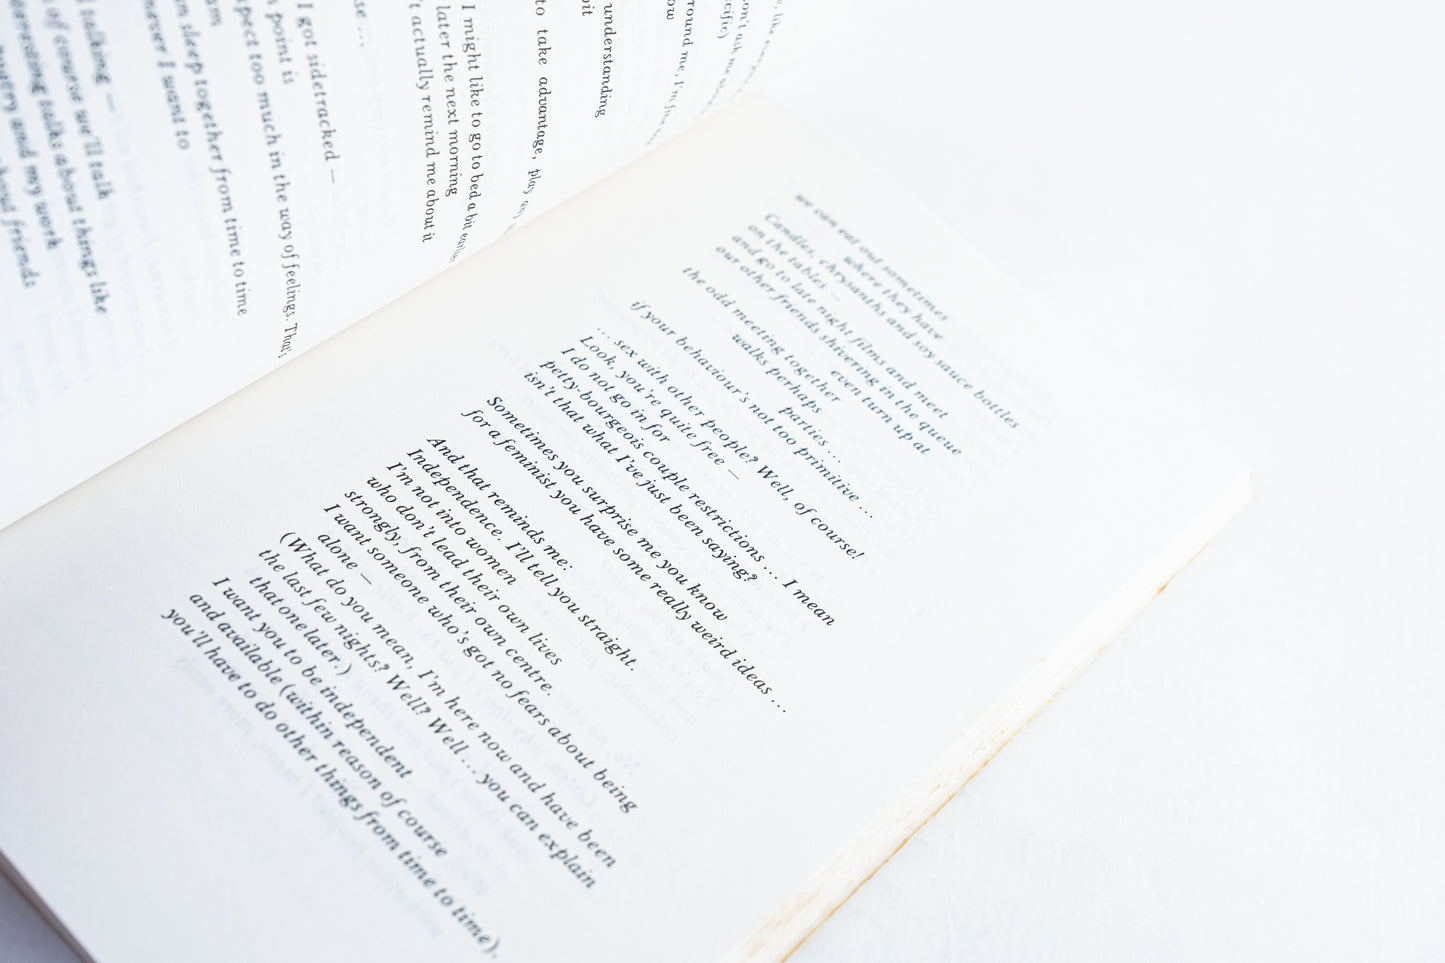 don't ask me
round me, I'm fine
understanding
bit
to take advantage, play any
I might like to go to bed a bit earlier
later the next morning
actually remind me about it
I got sidetracked —
point is
too much in the way of feelings. That's
sleep together from time to time
never I want to
talking —
of course we'll talk
talks about things like
poetry and my work
about friends
we can eat out sometimes
where they have
Candles, chrysanths and soy sauce bottles
on the tables –
and go to late night films and meet
our other friends shivering in the queue
even turn up at
the odd meeting together
walks perhaps
parties …
if your behaviour's not too primitive …
… sex with other people? Well, of course!
Look, you're quite free –
I do not go in for
petty-bourgeois couple restrictions … I mean
isn't that what I've just been saying?
Sometimes you surprise me you know
for a feminist you have some really weird ideas …
And that reminds me:
Independence. I'll tell you straight.
I'm not into women
who don't lead their own lives
strongly, from their own centre.
I want someone who's got no fears about being
alone –
(What do you mean, I'm here now and have been
the last few nights? Well? Well … you can explain
that one later.)
I want you to be independent
and available (within reason of course
you'll have to do other things from time to time).